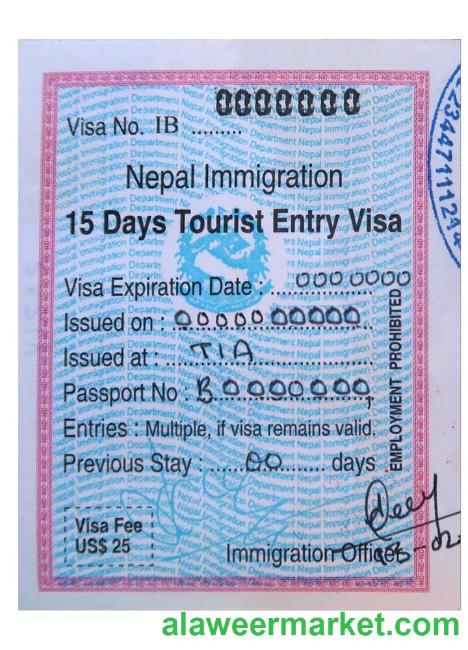 0000000
Visa No. IB .........
Nepal Immigration
15 Days Tourist Entry Visa
Visa Expiration Date : 000 0000
Issued on : 00000 00000
Issued at : TIA
Passport No : B0000000
Entries : Multiple, if visa remains valid.
Previous Stay : 00 days
EMPLOYMENT PROHIBITED
Visa Fee
US$ 25
Immigration Officer
alaweermarket.com